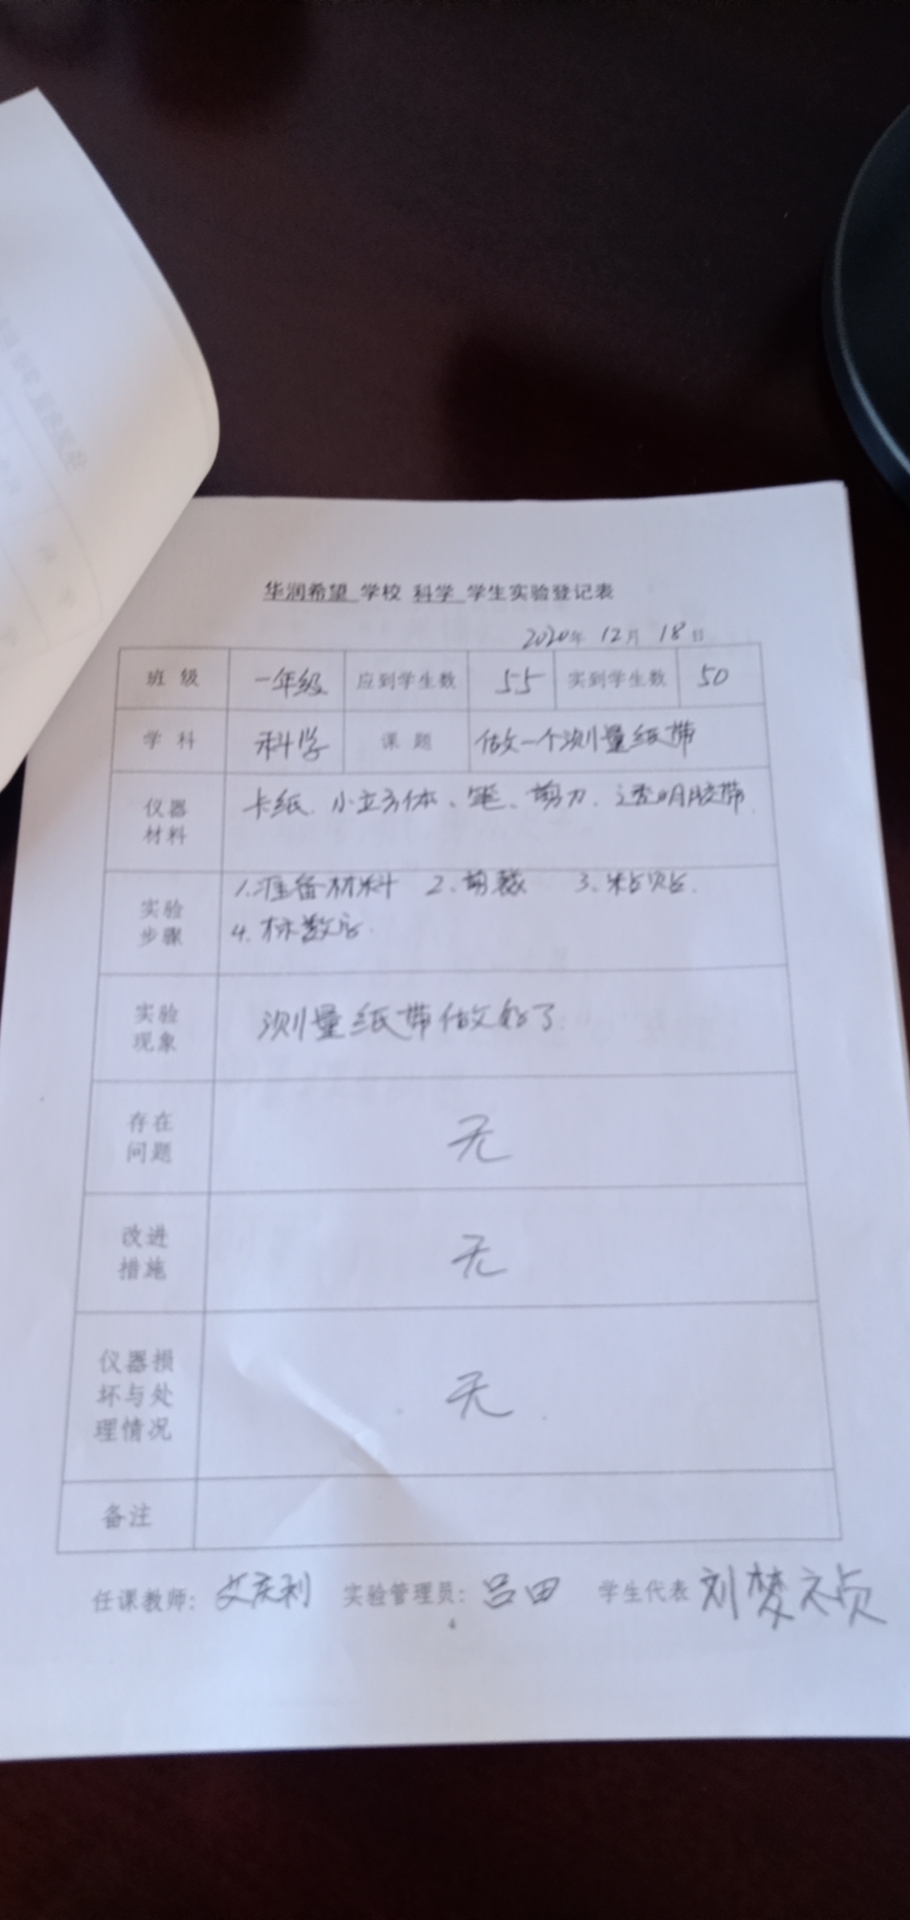 华润希望 学校 科学 学生实验登记表
2020年 12月 18日
班级 一年级 应到学生数 55 实到学生数 50
学科 科学 课题 做一个测量纸带
仪器 卡纸、小立方体、笔、剪刀、透明胶带
材料
实验 1.准备材料 2.剪裁 3.粘贴.
步骤 4.标数字.
实验 测量纸带做好了
现象
存在 无
问题
改进 无
措施
仪器损
坏与处 无
理情况
备注
任课教师: 艾庆利 实验管理员: 吕田 学生代表 刘梦
4